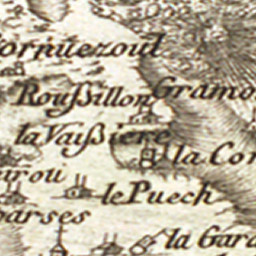 Cornuezoul
Roußillon
Gramo
la Vaißiere
la Cor
irou
le Puech
arses
la Gard